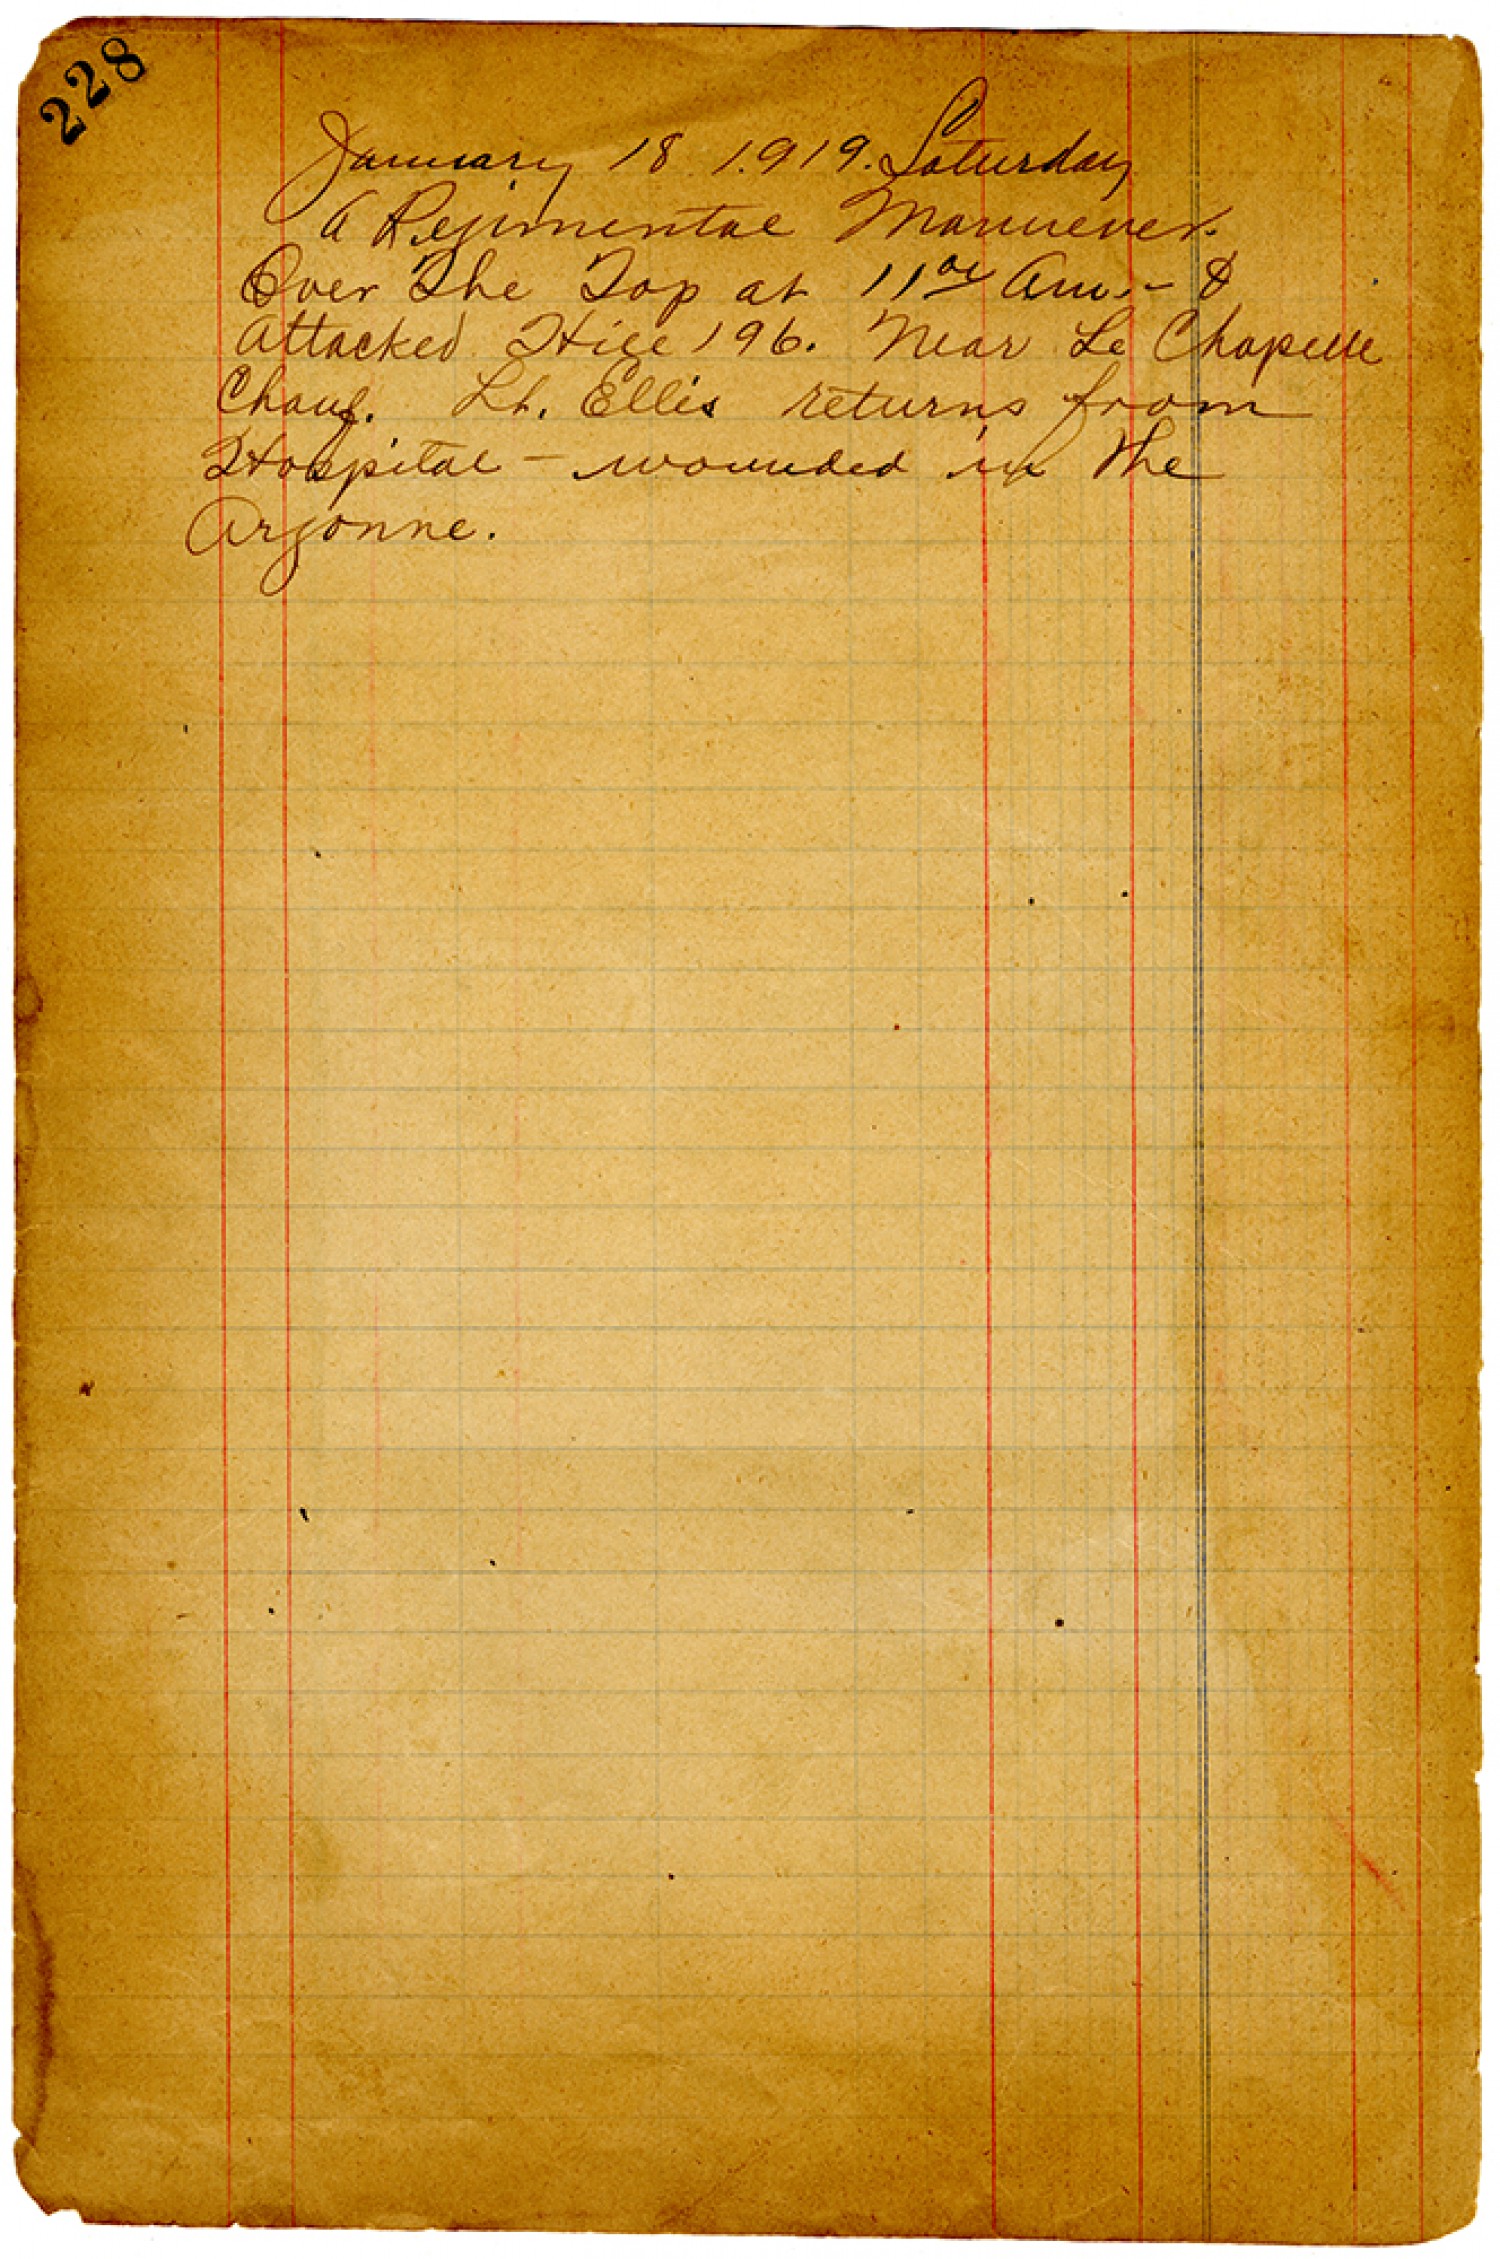 228
January 18 1919. Saturday
A Regimental Manuever.
Over The Top at 11 00 Am. - &
attacked Hill 196. Near Le Chapelle
Chauf. Lt. Ellis returns from
Hospital - wounded in the
Argonne.